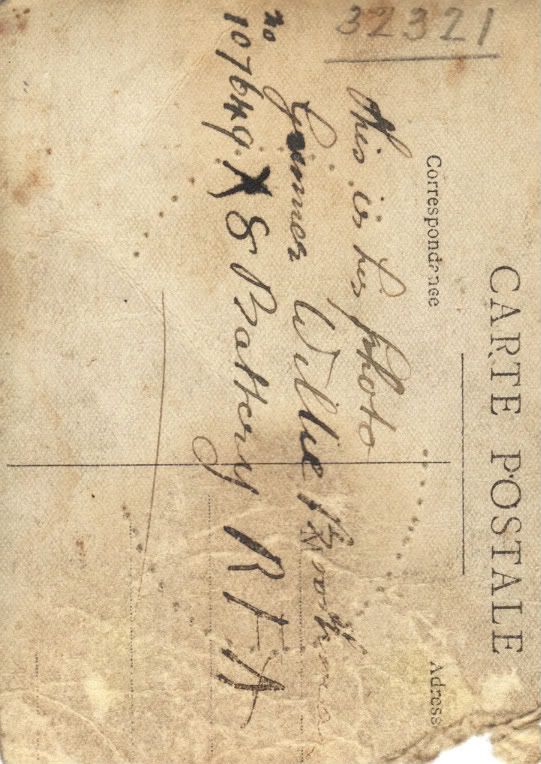 32321
CARTE POSTALE
Correspondance
Adress
This is his photo
Gunner Willie
no 107649 X 8 Battery R F A